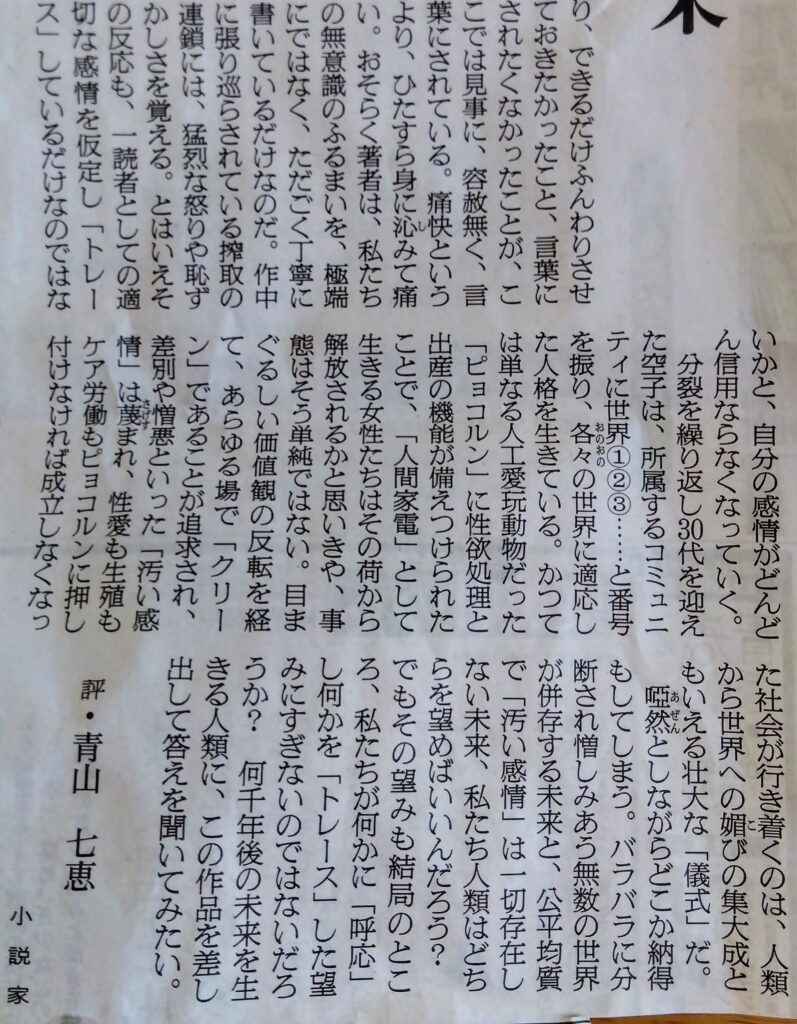 り、できるだけふんわりさせ
ておきたかったこと、言葉に
されたくなかったことが、こ
こでは見事に、容赦無く、言
葉にされている。痛快という
より、ひたすら身に沁みて痛
い。おそらく著者は、私たち
の無意識のふるまいを、極端
にではなく、ただごく丁寧に
書いているだけなのだ。作中
に張り巡らされている搾取の
連鎖には、猛烈な怒りや恥ず
かしさを覚える。とはいえそ
の反応も、一読者としての適
切な感情を仮定し「トレー
ス」しているだけなのではな
いかと、自分の感情がどんど
ん信用ならなくなっていく。
分裂を繰り返し30代を迎え
た空子は、所属するコミュニ
ティに世界①②③……と番号
を振り、各々の世界に適応し
た人格を生きている。かつて
は単なる人工愛玩動物だった
「ピョコルン」に性欲処理と
出産の機能が備えつけられた
ことで、「人間家電」として
生きる女性たちはその荷から
解放されるかと思いきや、事
態はそう単純ではない。目ま
ぐるしい価値観の反転を経
て、あらゆる場で「クリー
ン」であることが追求され、
差別や憎悪といった「汚い感
情」は蔑まれ、性愛も生殖も
ケア労働もピョコルンに押し
付けなければ成立しなくなっ
た社会が行き着くのは、人類
から世界への媚びの集大成と
もいえる壮大な「儀式」だ。
啞然としながらどこか納得
もしてしまう。バラバラに分
断され憎しみあう無数の世界
が併存する未来と、公平均質
で「汚い感情」は一切存在し
ない未来、私たち人類はどち
らを望めばいいんだろう？
でもその望みも結局のとこ
ろ、私たちが何かに「呼応」
し何かを「トレース」した望
みにすぎないのではないだろ
うか？　何千年後の未来を生
きる人類に、この作品を差し
出して答えを聞いてみたい。
評・青山　七恵
小説家